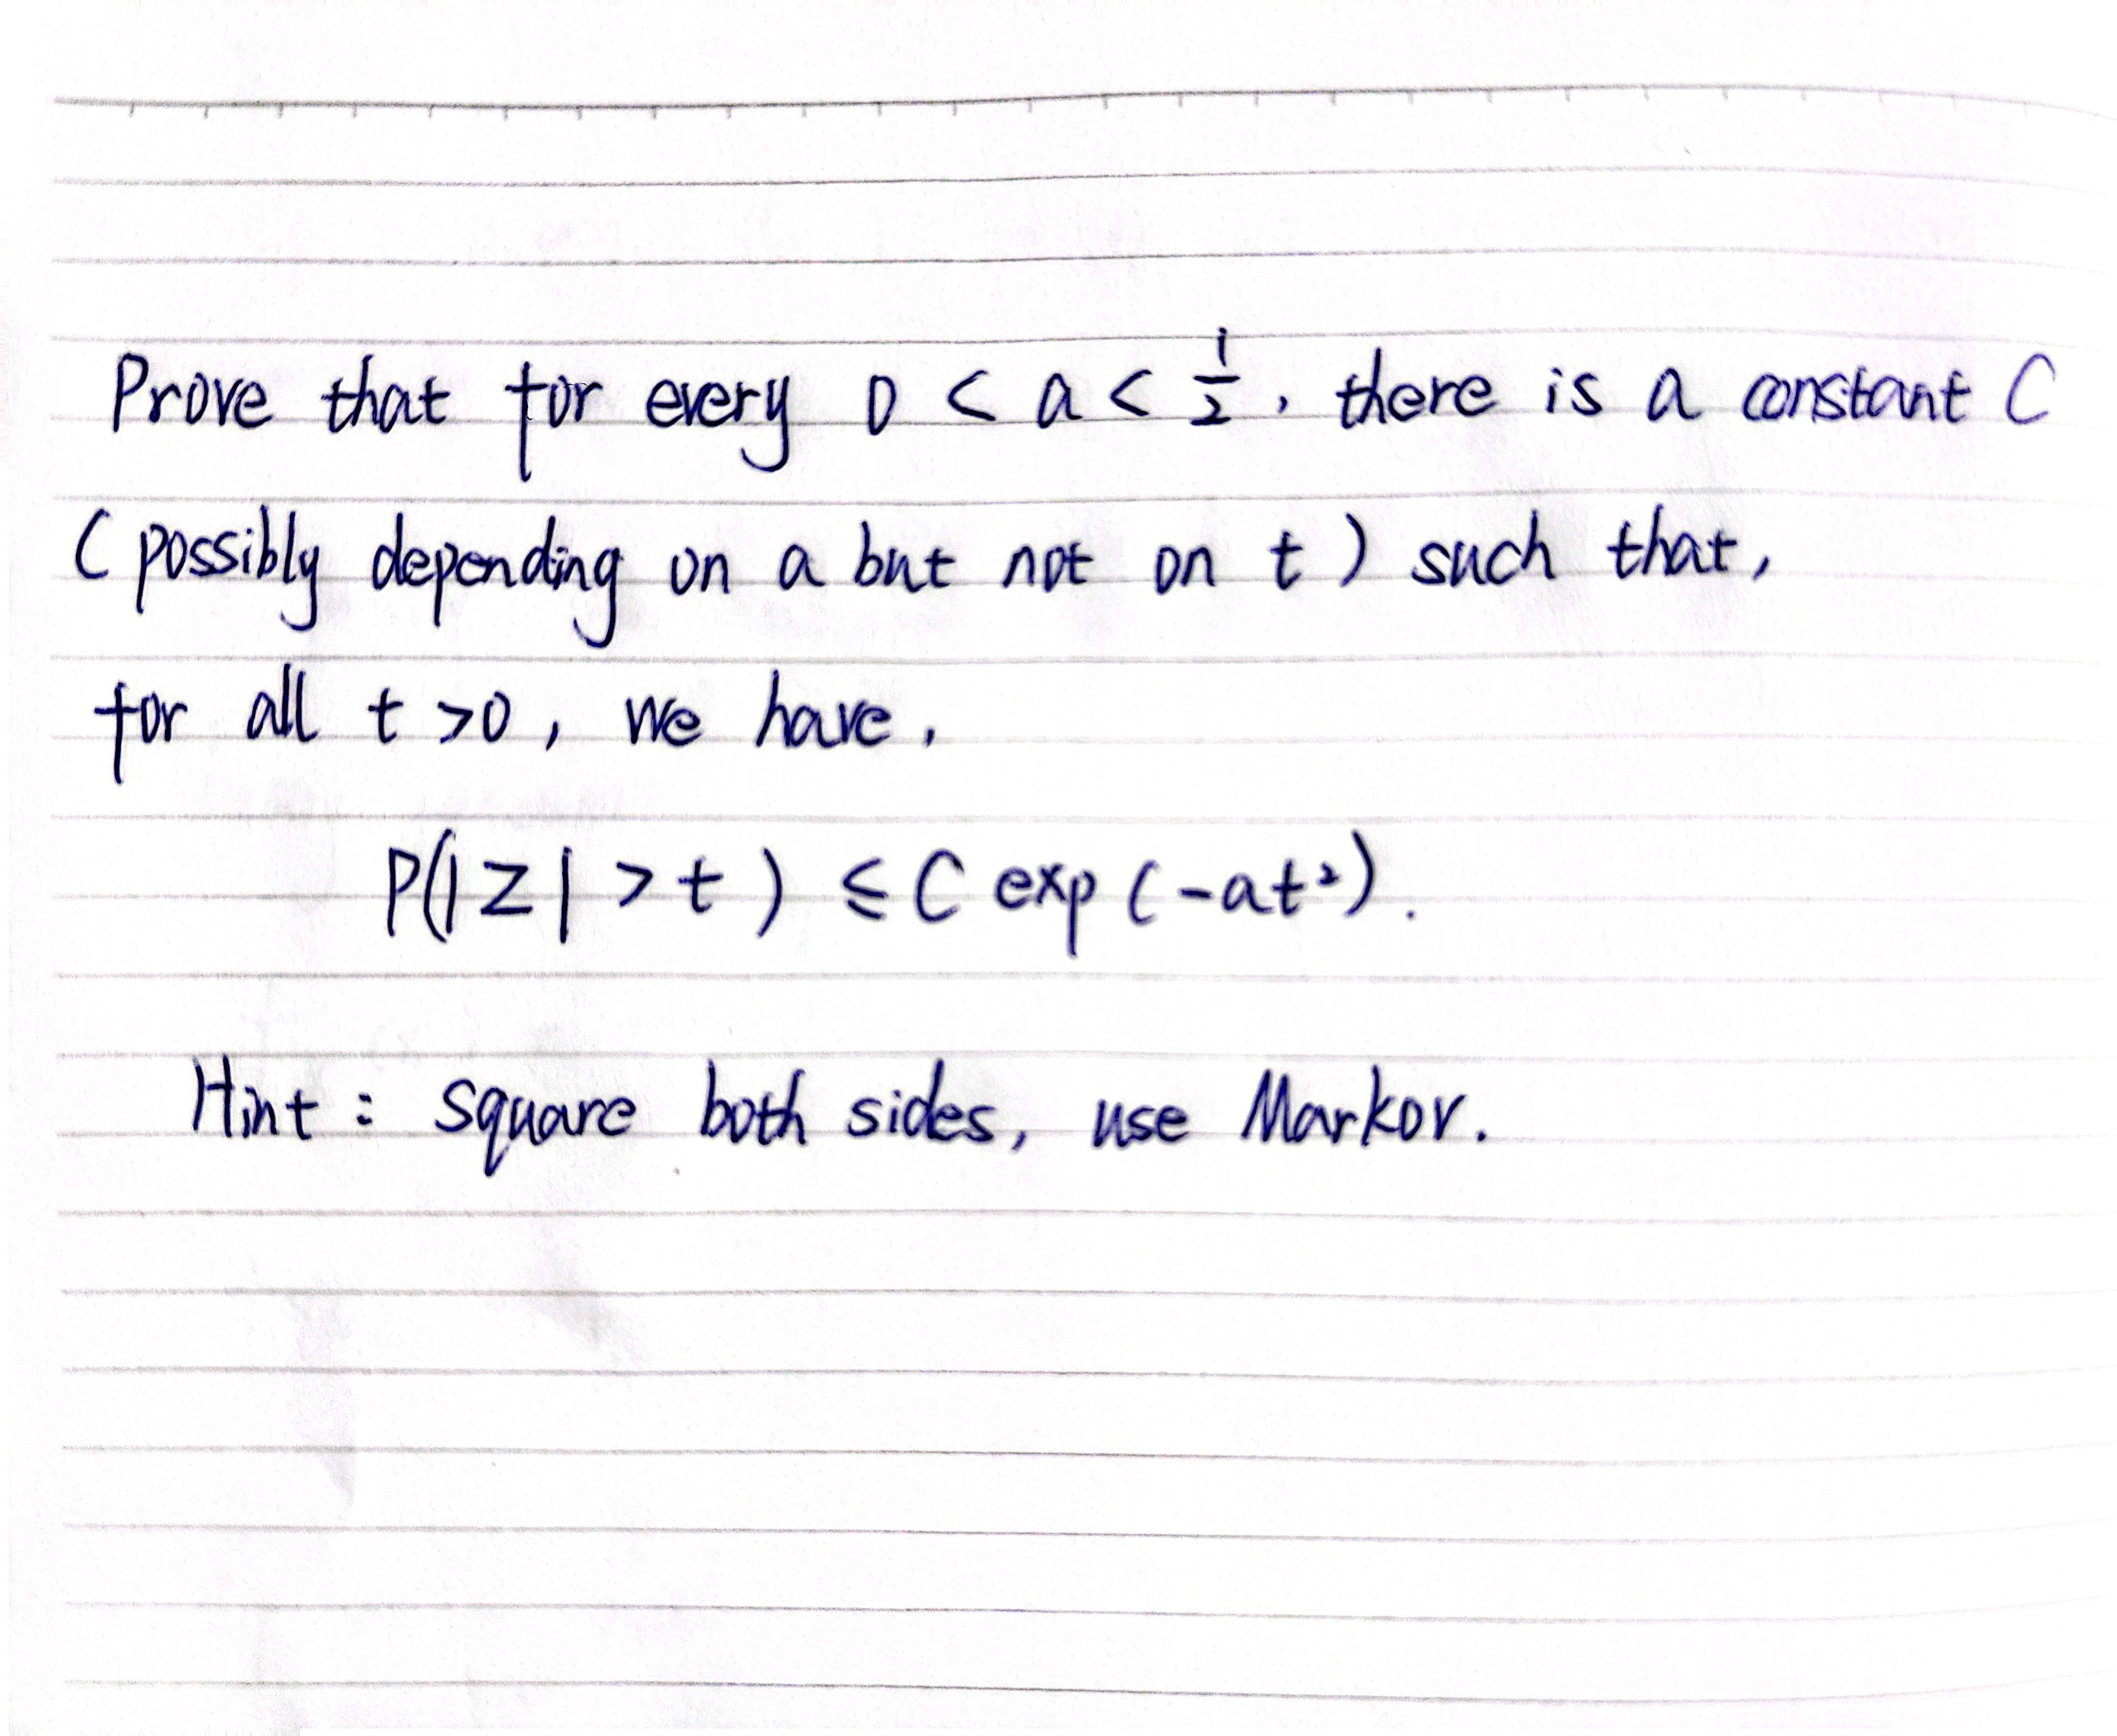 Prove that for every 0 < a < 1/2, there is a constant C
(possibly depending on a but not on t) such that,
for all t >0, we have,
P(|Z| > t) ≤ C exp(-at²).
Hint: square both sides, use Markov.